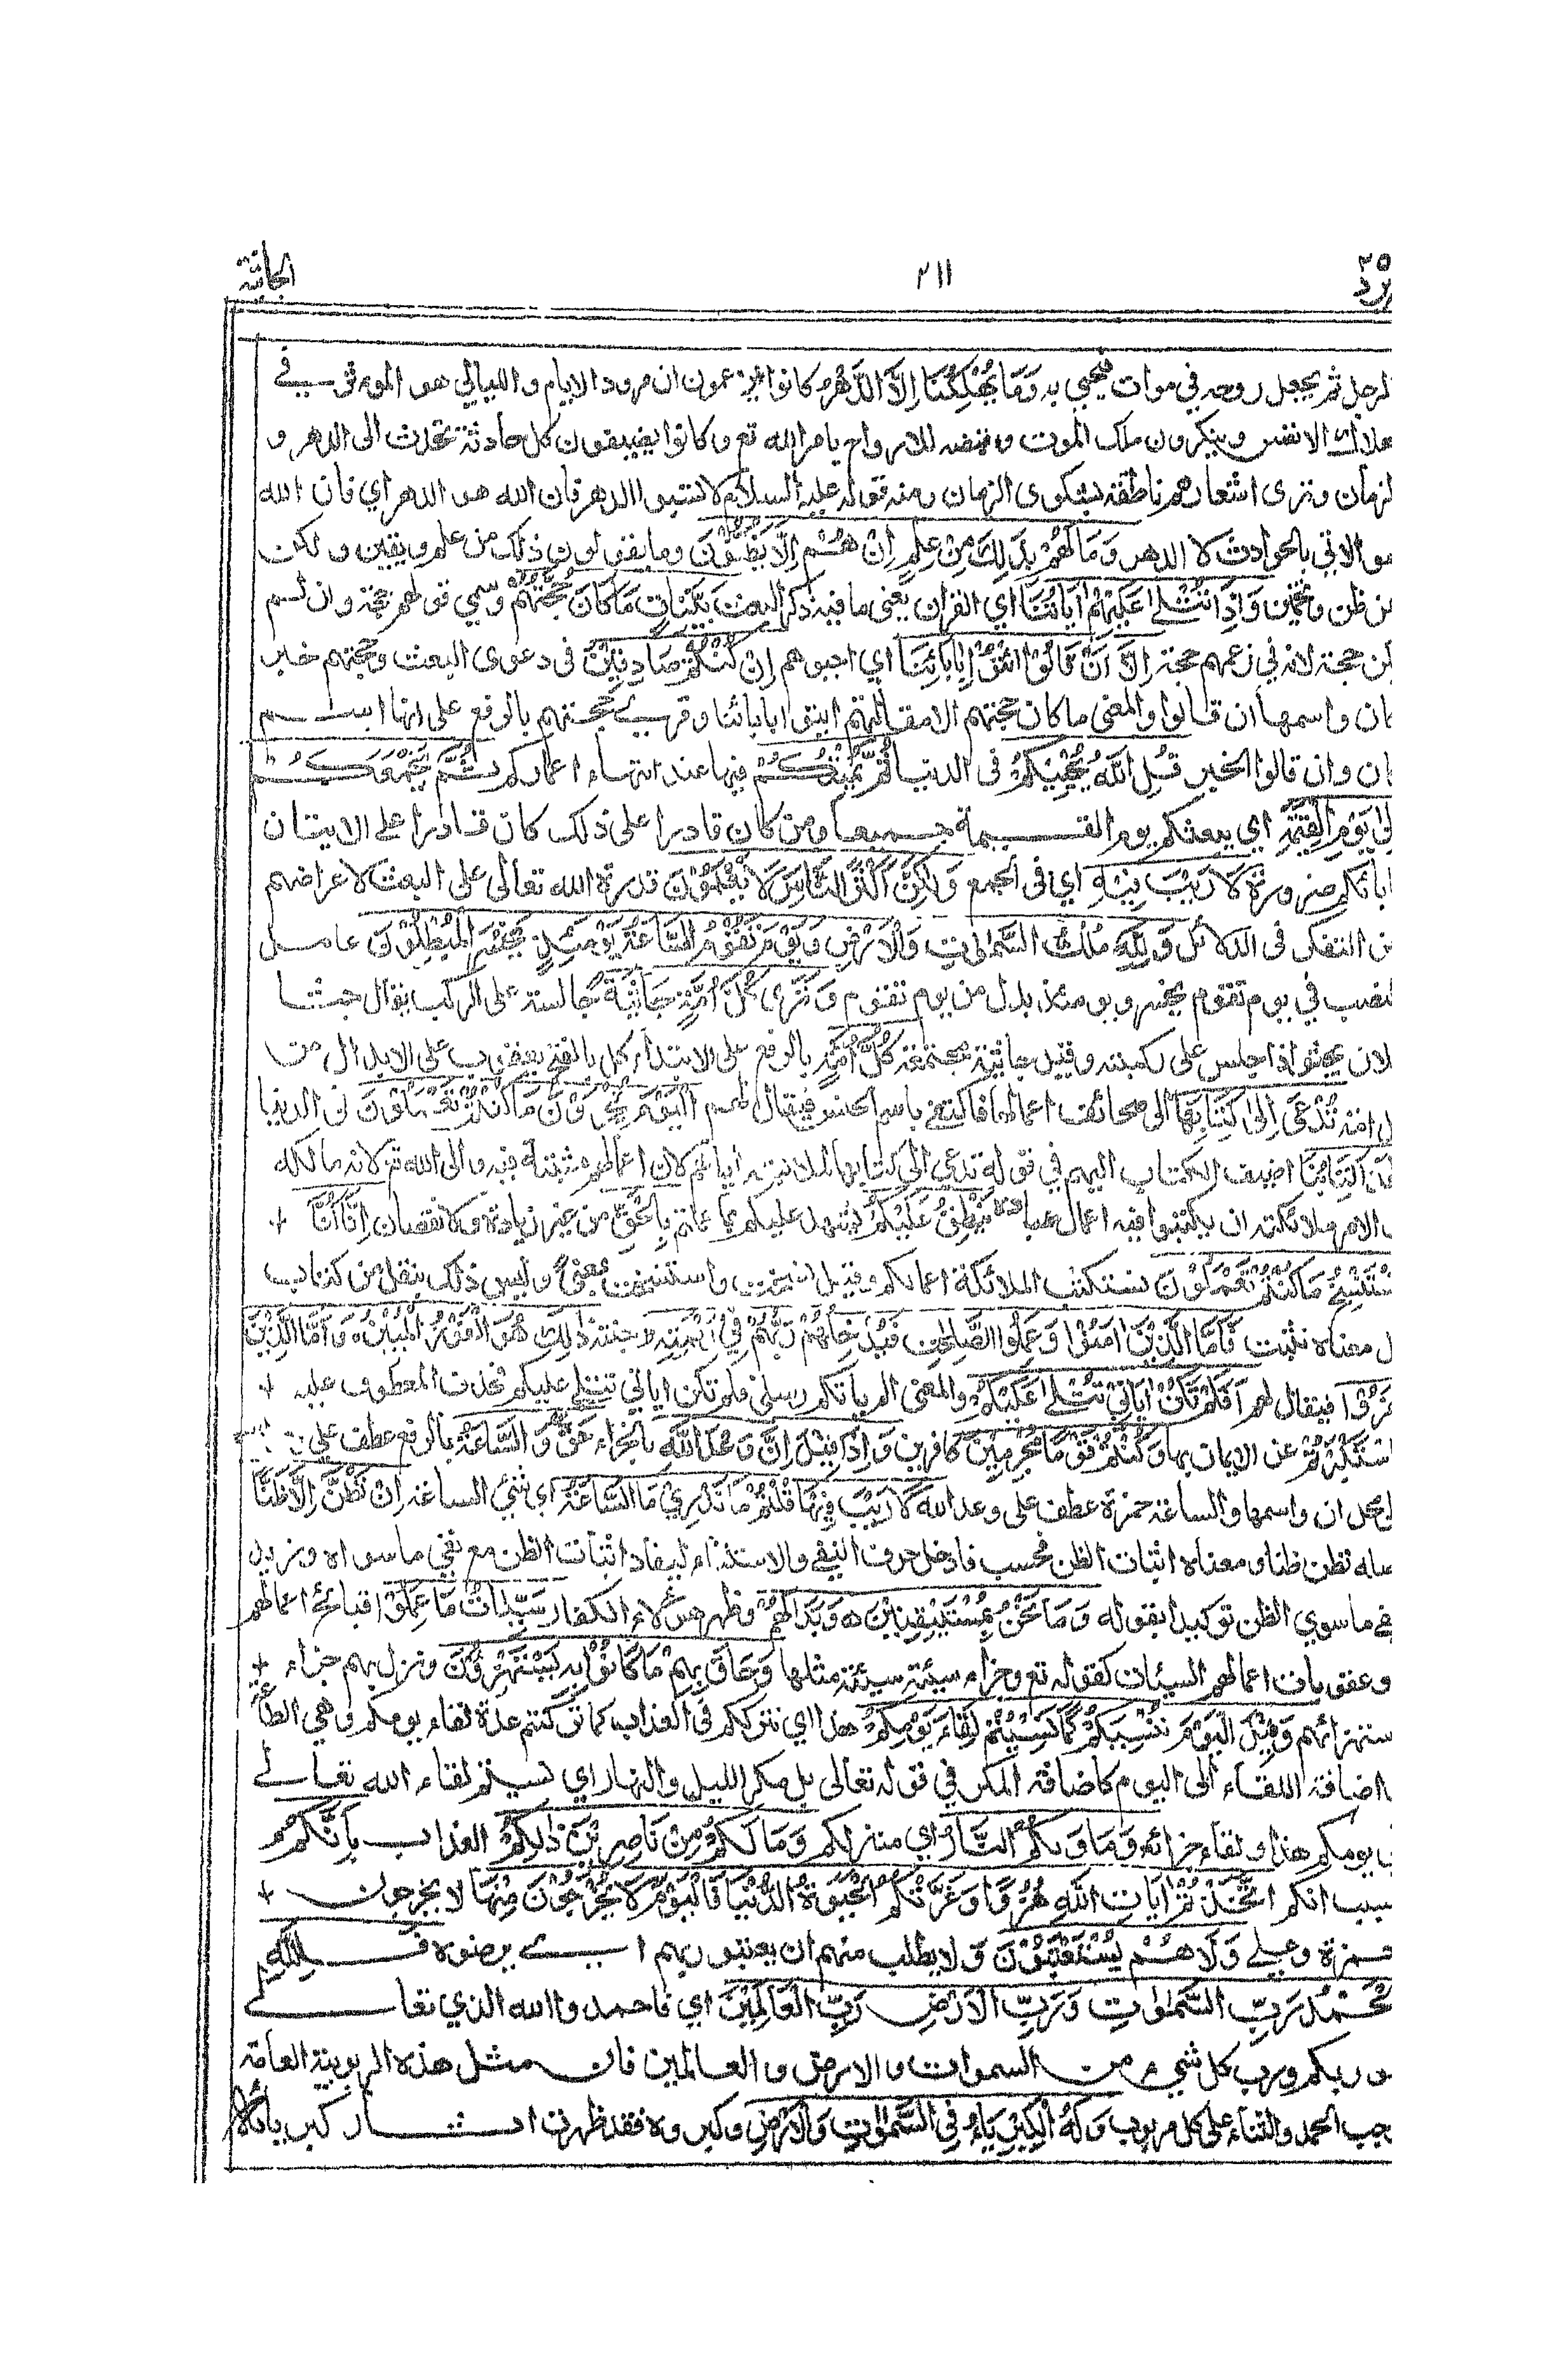 الجاثية ٢١١ ٢٥
الرجل ثم يجعل روحه في موات فيحيي به وَمَا يُهْلِكُنَا إِلَّا الدَّهْرُ كانوا يزعمون ان مرور الايام والليالي هو الموثر في
هلاك الانفس وينكرون ملك الموت وقبضه للارواح بامر الله تع وكانوا يضيفون كل حادثة تحدث الى الدهر و
الزمان وترى اشعارهم ناطقة بشكوى الزمان ومنه قوله عليه السلام لا تسبوا الدهر فان الله هو الدهر اي فان الله
هو الاتي بالحوادث لا الدهر وَمَا لَهُمْ بِذَلِكَ مِنْ عِلْمٍ إِنْ هُمْ إِلَّا يَظُنُّونَ وما يقولون ذلك من علم ويقين ولكن
من ظن وتخمين وَإِذَا تُتْلَى عَلَيْهِمْ آيَاتُنَا اي القران يعنى ما فيه ذكر البعث بَيِّنَاتٍ مَا كَانَ حُجَّتَهُمْ وسمي قولهم حجة وان لم
يكن حجة لانه في زعمهم حجة إِلَّا أَنْ قَالُوا ائْتُوا بِآبَائِنَا اي احيوهم إِنْ كُنْتُمْ صَادِقِينَ فى دعوى البعث وحجتهم خبر
كان واسمها ان قالوا والمعنى ما كان حجتهم الا مقالتهم ايتوا بابائنا وقرئ حجتهم بالرفع على انها اسم
كان وان قالوا الخبر قُلِ اللَّهُ يُحْيِيكُمْ فى الدنيا ثُمَّ يُمِيتُكُمْ فيها عند انتهاء اعماركم ثُمَّ يَجْمَعُكُمْ
إِلَى يَوْمِ الْقِيٰمَةِ اي يبعثكم يوم القيمة جميعا ومن كان قادرا على ذلك كان قادرا على الاتيان
بابائكم ضرورة لَا رَيْبَ فِيهِ اي فى الجمع وَلَكِنَّ أَكْثَرَ النَّاسِ لَا يَعْلَمُونَ قدرة الله تعالى على البعث لاعراضهم
عن التفكر فى الدلائل وَلِلَّهِ مُلْكُ السَّمٰوٰتِ وَالْأَرْضِ وَيَوْمَ تَقُومُ السَّاعَةُ يَوْمَئِذٍ يَخْسَرُ الْمُبْطِلُونَ عامل
النصب في يوم تقوم يخسر ويومئذ بدل من يوم تقوم وَتَرَى كُلَّ أُمَّةٍ جَاثِيَةً جالسة على الركب يقال جثا
فلان يجثو اذا جلس على ركبته وقيل جاثية مجتمعة كُلُّ أُمَّةٍ بالرفع على الابتداء كل بالفتح يعقوب على الابدال من
كل امة تُدْعَى إِلَى كِتَابِهَا الى صحائف اعمالها فاكتفى باسم الجنس فيقال لهم الْيَوْمَ تُجْزَوْنَ مَا كُنْتُمْ تَعْمَلُونَ فى الدنيا
هَذَا كِتَابُنَا اضيف الكتاب اليهم في قوله تدعى الى كتابها لملابسته اياهم لان اعمالهم مثبتة فيه والى الله تع لانه مالكه
والامر ملائكته ان يكتبوا فيه اعمال عباده يَنْطِقُ عَلَيْكُمْ يشهد عليكم بما عملتم بِالْحَقِّ من غير زيادة ولا نقصان إِنَّا كُنَّا
نَسْتَنْسِخُ مَا كُنْتُمْ تَعْمَلُونَ نستكتب الملائكة اعمالكم وقيل نسخت واستنسخت بمعنى وليس ذلك بنقل من كتاب
بل معناه نثبت فَأَمَّا الَّذِينَ آمَنُوا وَعَمِلُوا الصَّالِحٰتِ فَيُدْخِلُهُمْ رَبُّهُمْ فِي رَحْمَتِهِ جنته ذَلِكَ هُوَ الْفَوْزُ الْمُبِينُ وَأَمَّا الَّذِينَ
كَفَرُوا فيقال لهم أَفَلَمْ تَكُنْ آيَاتِي تُتْلَى عَلَيْكُمْ والمعنى الم ياتكم رسلى فلم تكن اياتي تتلى عليكم فحذف المعطوف عليه
فَاسْتَكْبَرْتُمْ عن الايمان بها وَكُنْتُمْ قَوْمًا مُجْرِمِينَ كافرين وَإِذَا قِيلَ إِنَّ وَعْدَ اللَّهِ بالجزاء حَقٌّ وَالسَّاعَةُ بالرفع عطف على
محل ان واسمها والساعة حمزة عطف على وعد الله لَا رَيْبَ فِيهَا قُلْتُمْ مَا نَدْرِي مَا السَّاعَةُ اى شئ الساعة إِنْ نَظُنُّ إِلَّا ظَنًّا
اصله نظن ظنا ومعناه اثبات الظن فحسب فادخل حرف النفي والاستثناء ليفاد اثبات الظن مع نفي ما سواه وزيد
نفي ما سوي الظن توكيدا بقوله وَمَا نَحْنُ بِمُسْتَيْقِنِينَ وَبَدَا لَهُمْ وظهر لهؤلاء الكفار سَيِّئَاتُ مَا عَمِلُوا قبائح اعمالهم
او عقوبات اعمالهم السيئات كقوله تع وجزاء سيئة سيئة مثلها وَحَاقَ بِهِمْ مَا كَانُوا بِهِ يَسْتَهْزِؤُنَ ونزل بهم جزاء
استهزائهم وَقِيلَ الْيَوْمَ نَنْسٰكُمْ كَمَا نَسِيتُمْ لِقَاءَ يَوْمِكُمْ هذا اي نترككم فى العذاب كما تركتم عدة لقاء يومكم وهي الطاعة
واضافة اللقاء الى اليوم كاضافة المكر في قوله تعالى بل مكر الليل والنهار اي نسيتم لقاء الله تعالى
في يومكم هذا ولقاء جزائه وَمَأْوٰىكُمُ النَّارُ اي منزلكم وَمَا لَكُمْ مِنْ نَاصِرِينَ ذَلِكُمْ العذاب بِأَنَّكُمُ
بسبب انكم اتَّخَذْتُمْ آيَاتِ اللَّهِ هُزُوًا وَغَرَّتْكُمُ الْحَيٰوةُ الدُّنْيَا فَالْيَوْمَ لَا يُخْرَجُونَ مِنْهَا لا يخرجون
حمزة وعلي وَلَا هُمْ يُسْتَعْتَبُونَ ولا يطلب منهم ان يعتبوا ربهم اى يرضوه فَلِلَّهِ
الْحَمْدُ رَبِّ السَّمٰوٰتِ وَرَبِّ الْأَرْضِ رَبِّ الْعَالَمِينَ اي فاحمدوا الله الذي تعالى
هو ربكم ورب كل شيء من السموات والارض والعالمين فان مثل هذه الربوبية العامة
يوجب الحمد والثناء على كل مربوب وَلَهُ الْكِبْرِيَاءُ فِي السَّمٰوٰتِ وَالْأَرْضِ وكبروه فقد ظهرت اثار كبريائه